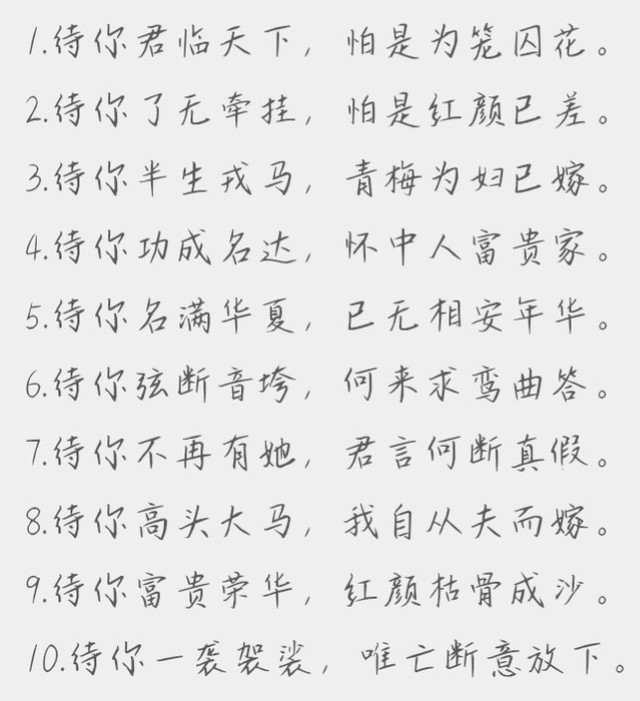 1.待你君临天下，怕是为笼囚花。
2.待你了无牵挂，怕是红颜已差。
3.待你半生戎马，青梅为妇已嫁。
4.待你功成名达，怀中人富贵家。
5.待你名满华夏，已无相安年华。
6.待你弦断音垮，何来求鸾曲答。
7.待你不再有她，君言何断真假。
8.待你高头大马，我自从夫而嫁。
9.待你富贵荣华，红颜枯骨成沙。
10.待你一袭袈裟，唯亡断意放下。